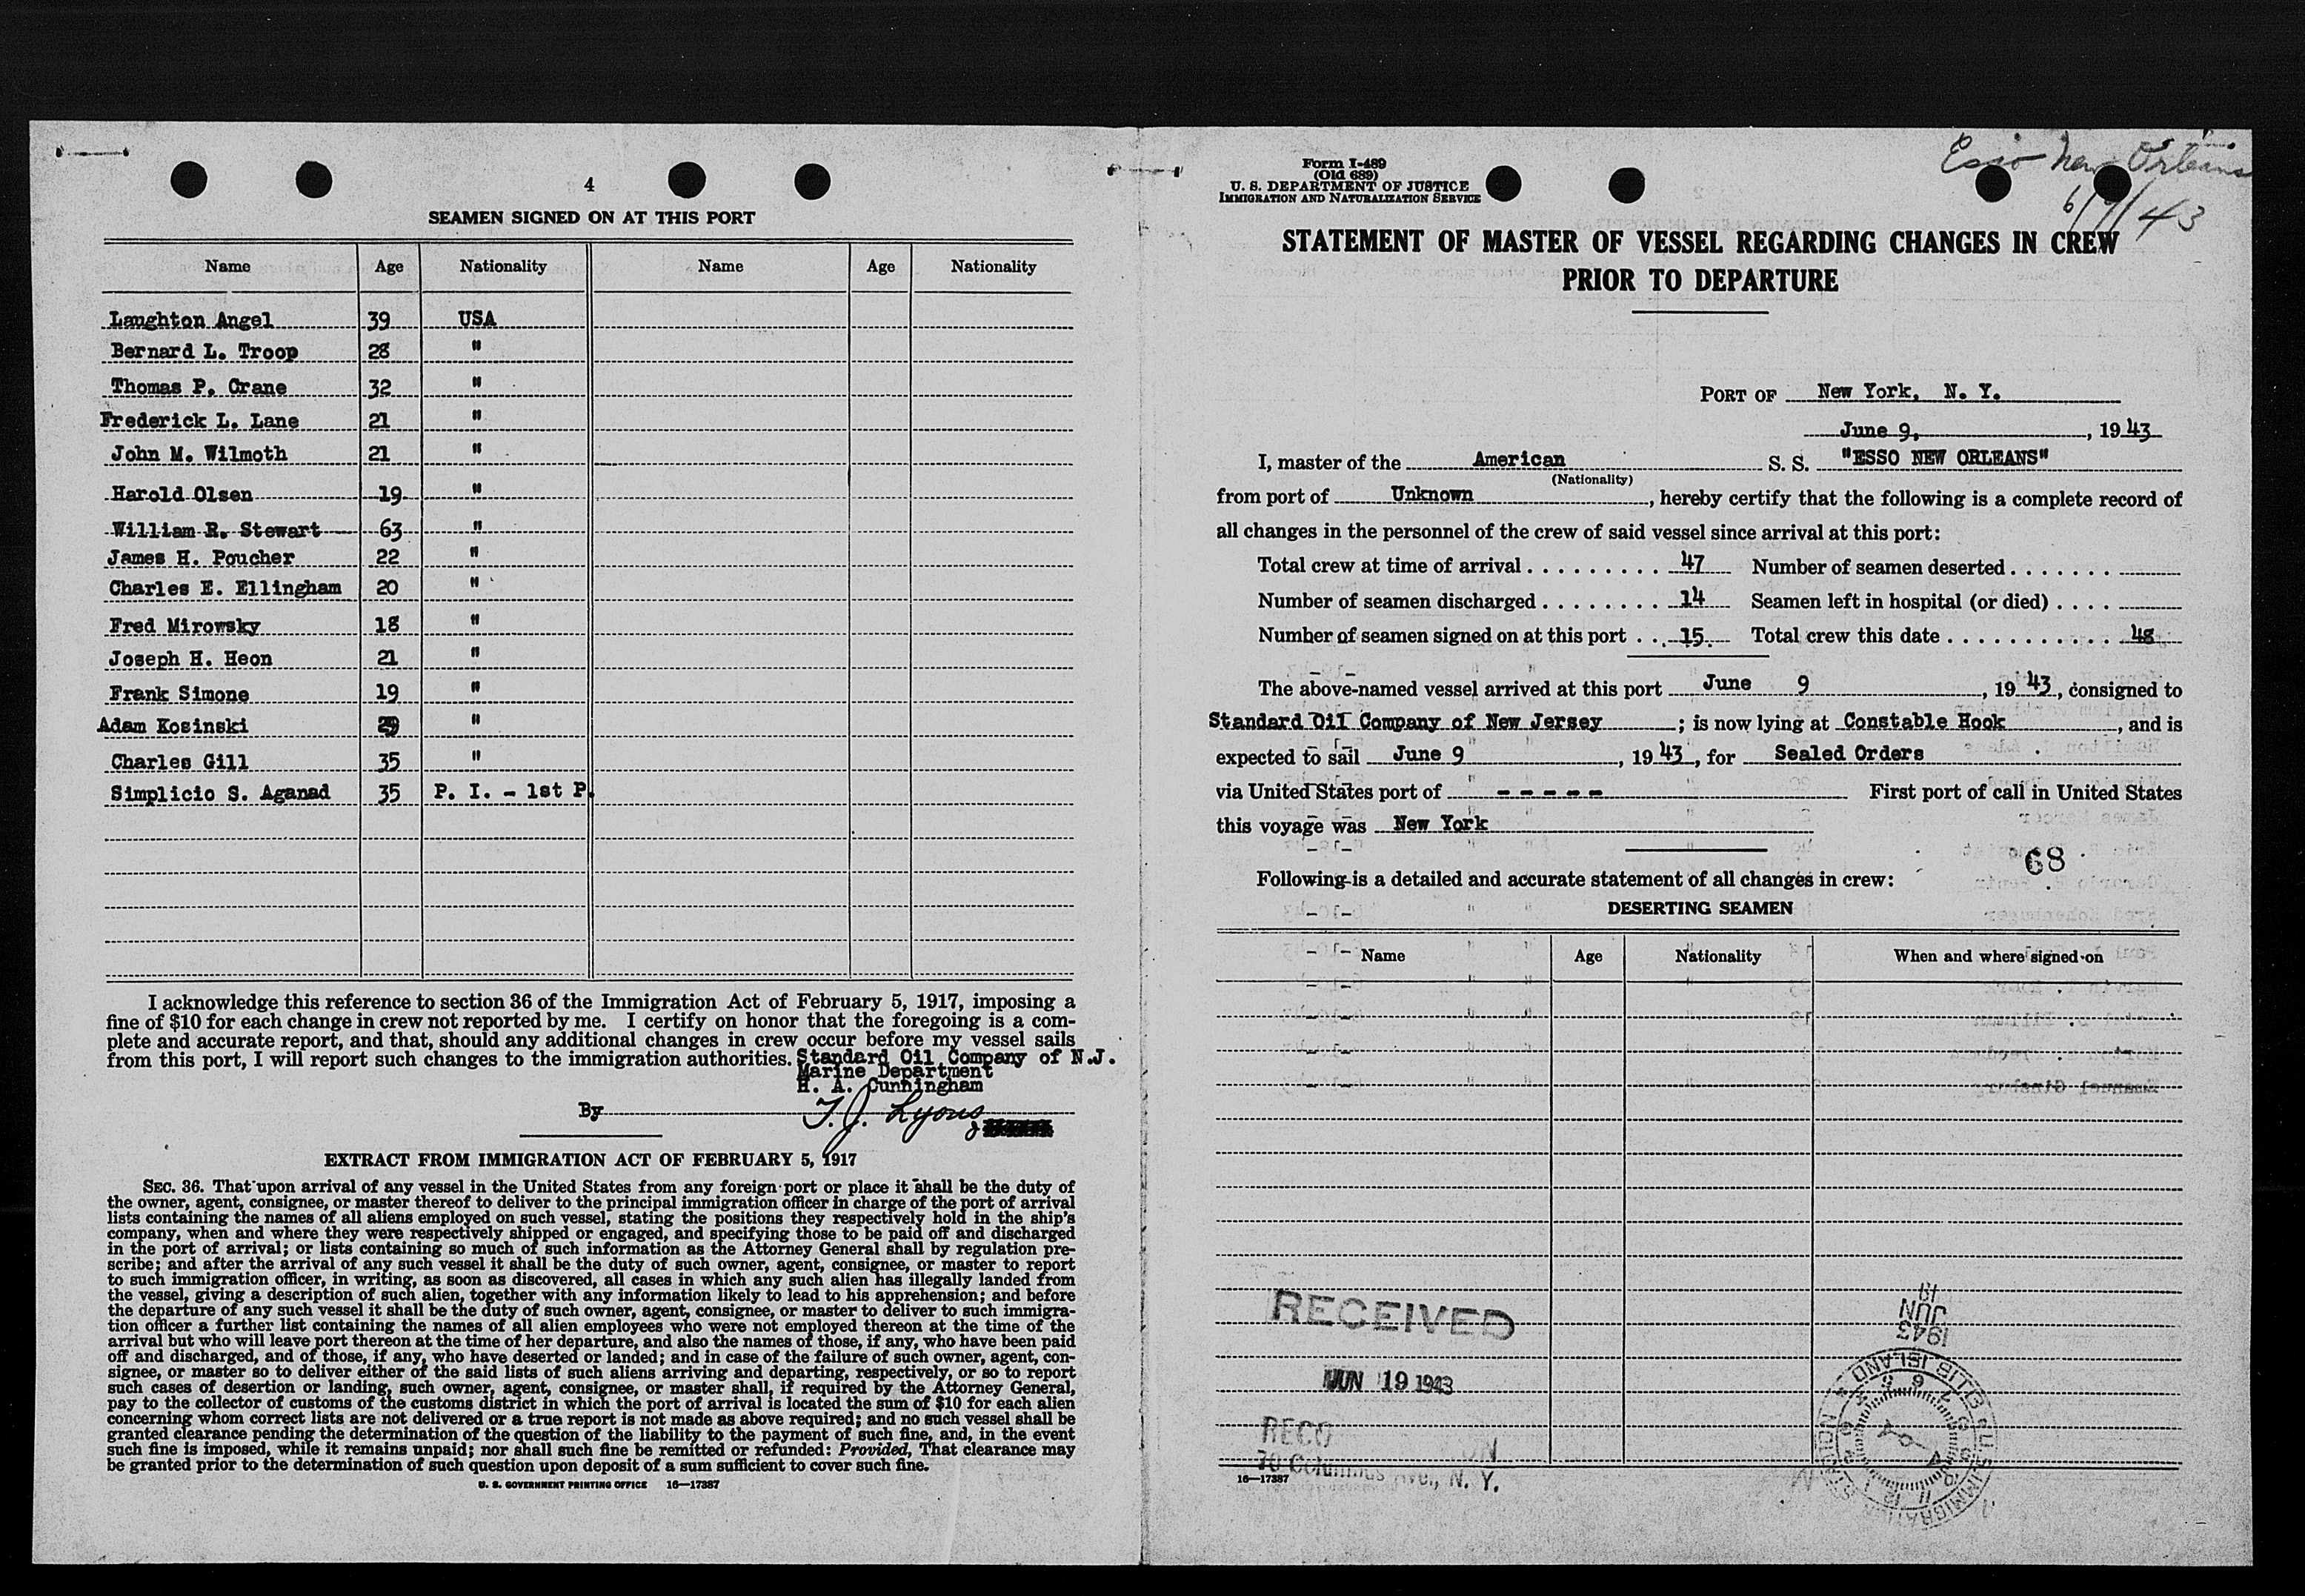 4
SEAMEN SIGNED ON AT THIS PORT
Name Age Nationality Name Age Nationality
Laughton Angel 39 USA
Bernard L. Troop 28 "
Thomas P. Crane 32 "
Frederick L. Lane 21 "
John M. Wilmoth 21 "
Harold Olsen 19 "
William R. Stewart 63 "
James H. Poucher 22 "
Charles E. Ellingham 20 "
Fred Mirowsky 18 "
Joseph H. Heon 21 "
Frank Simone 19 "
Adam Kosinski "
Charles Gill 35 "
Simplicio S. Aganad 35 P. I. - 1st P.
I acknowledge this reference to section 36 of the Immigration Act of February 5, 1917, imposing a
fine of $10 for each change in crew not reported by me. I certify on honor that the foregoing is a com-
plete and accurate report, and that, should any additional changes in crew occur before my vessel sails
from this port, I will report such changes to the immigration authorities. Standard Oil Company of N.J.
Marine Department
H. A. Cunningham
By T. J. Lyons
EXTRACT FROM IMMIGRATION ACT OF FEBRUARY 5, 1917
SEC. 36. That upon arrival of any vessel in the United States from any foreign port or place it shall be the duty of
the owner, agent, consignee, or master thereof to deliver to the principal immigration officer in charge of the port of arrival
lists containing the names of all aliens employed on such vessel, stating the positions they respectively hold in the ship's
company, when and where they were respectively shipped or engaged, and specifying those to be paid off and discharged
in the port of arrival; or lists containing so much of such information as the Attorney General shall by regulation pre-
scribe; and after the arrival of any such vessel it shall be the duty of such owner, agent, consignee, or master to report
to such immigration officer, in writing, as soon as discovered, all cases in which any such alien has illegally landed from
the vessel, giving a description of such alien, together with any information likely to lead to his apprehension; and before
the departure of any such vessel it shall be the duty of such owner, agent, consignee, or master to deliver to such immigra-
tion officer a further list containing the names of all alien employees who were not employed thereon at the time of the
arrival but who will leave port thereon at the time of her departure, and also the names of those, if any, who have been paid
off and discharged, and of those, if any, who have deserted or landed; and in case of the failure of such owner, agent, con-
signee, or master so to deliver either of the said lists of such aliens arriving and departing, respectively, or so to report
such cases of desertion or landing, such owner, agent, consignee, or master shall, if required by the Attorney General,
pay to the collector of customs of the customs district in which the port of arrival is located the sum of $10 for each alien
concerning whom correct lists are not delivered or a true report is not made as above required; and no such vessel shall be
granted clearance pending the determination of the question of the liability to the payment of such fine, and, in the event
such fine is imposed, while it remains unpaid; nor shall such fine be remitted or refunded: Provided, That clearance may
be granted prior to the determination of such question upon deposit of a sum sufficient to cover such fine.
U. S. GOVERNMENT PRINTING OFFICE 16—17387
Esso New Orleans
6/9/43
Form I-489
(Old 689)
U. S. DEPARTMENT OF JUSTICE
IMMIGRATION AND NATURALIZATION SERVICE
STATEMENT OF MASTER OF VESSEL REGARDING CHANGES IN CREW
PRIOR TO DEPARTURE
PORT OF New York, N. Y.
June 9, , 1943
I, master of the American S. S. "ESSO NEW ORLEANS"
(Nationality)
from port of Unknown , hereby certify that the following is a complete record of
all changes in the personnel of the crew of said vessel since arrival at this port:
Total crew at time of arrival . . . . . . . . . 47 Number of seamen deserted . . . . . . .
Number of seamen discharged . . . . . . . . 14 Seamen left in hospital (or died) . . . .
Number of seamen signed on at this port . . . 15. Total crew this date . . . . . . . . . . . 48
The above-named vessel arrived at this port June 9 , 19 43, consigned to
Standard Oil Company of New Jersey ; is now lying at Constable Hook , and is
expected to sail June 9 , 19 43, for Sealed Orders
via United States port of - - - - - First port of call in United States
this voyage was New York
68
Following is a detailed and accurate statement of all changes in crew:
DESERTING SEAMEN
Name Age Nationality When and where signed on
RECEIVED
JUN 19 1943
70 Columbus Ave., N. Y.
16—17387
19
JUN
1943
U.S. IMMIGRATION STATION ELLIS ISLAND